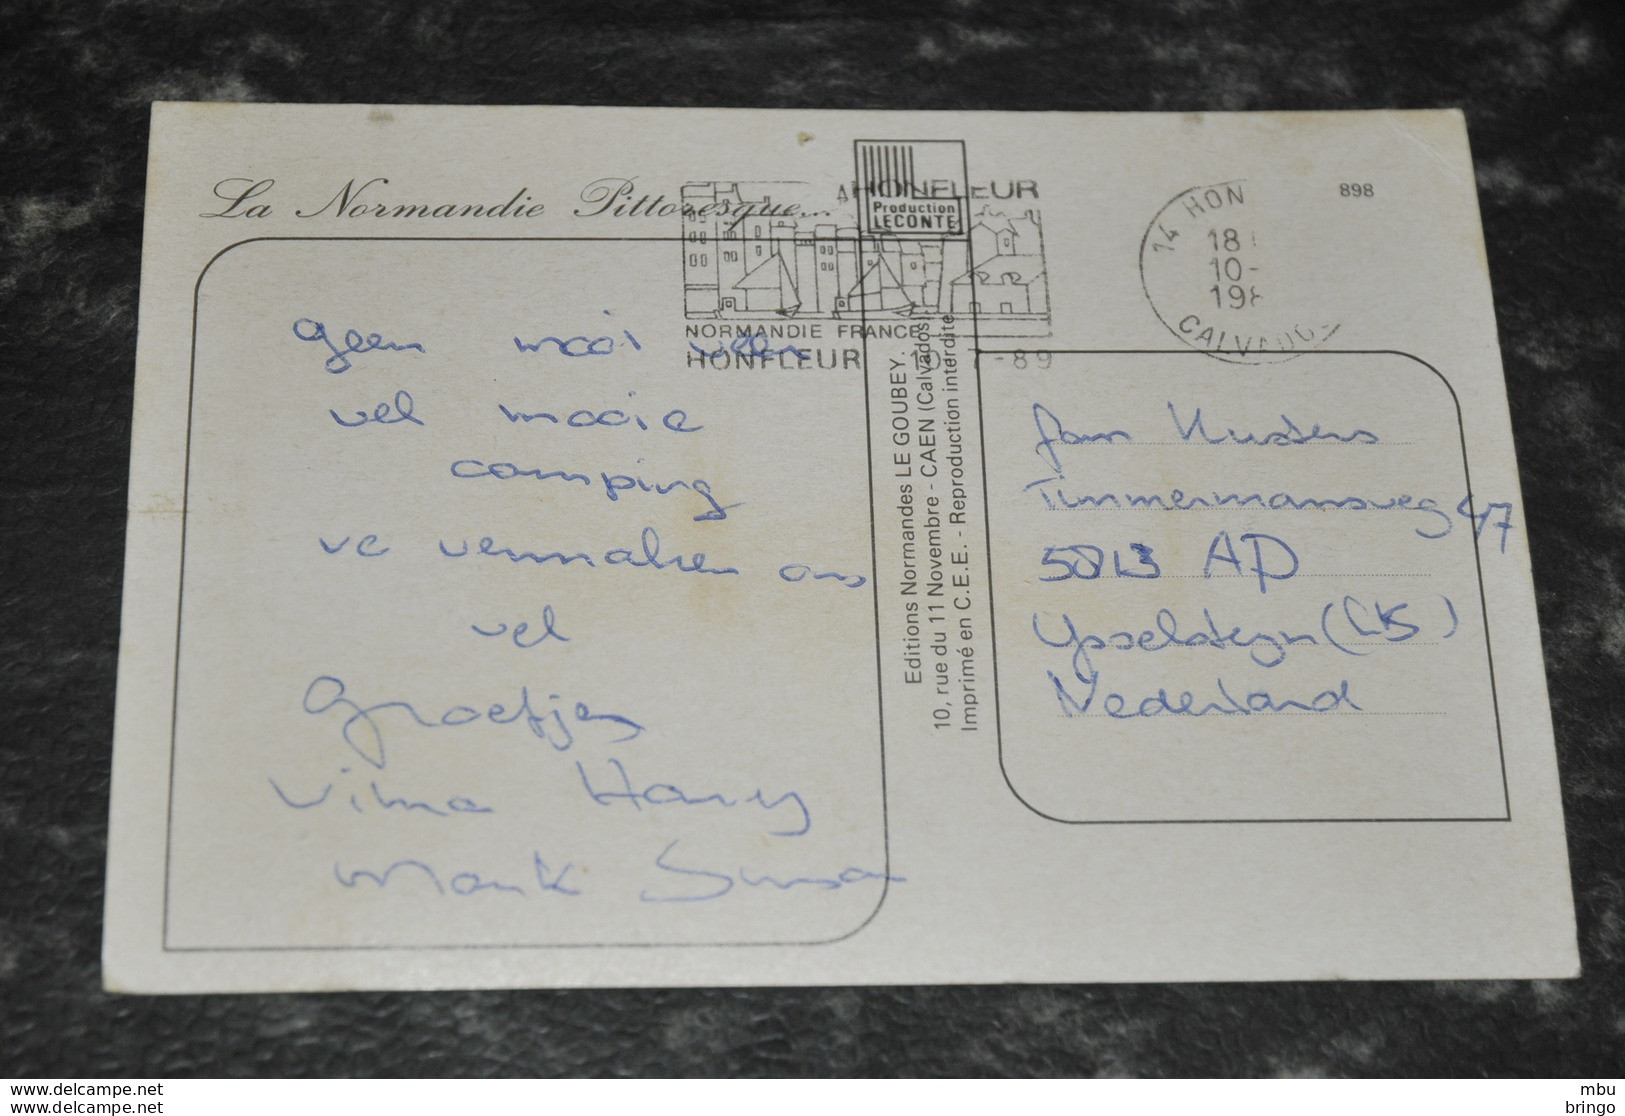 La Normandie Pittoresque...
HONFLEUR
Production
LECONTE
NORMANDIE FRANCE
HONFLEUR 7-89
14 HON
18
10-
198
CALVADOS
898
geen mooi weer
wel mooie
camping
we vermaken ons
wel
Groetjes
Wilma Harry
Mark Susan
Editions Normandes LE GOUBEY.
10, rue du 11 Novembre - CAEN (Calvados)
Imprimé en C.E.E. - Reproduction interdite
Timmermansweg 47
5813 AD
Ysselsteyn (LB)
Nederland
www.delcampe.net
www.delcampe.net
mbu
bringo